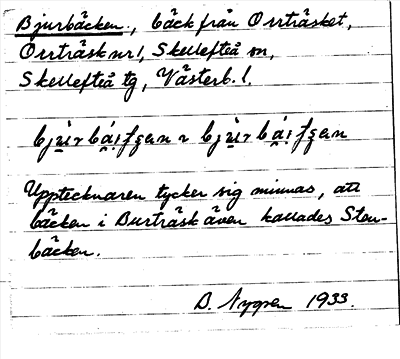 Bjurbäcken., bäck från Orrträsket,
Orrträsk nr 1, Skellefteå sn,
Skellefteå tg, Västerb. l.
Upptecknaren tycker sig minnas, att
bäcken i Burträsk även kallades Sten-
bäcken.
B. Nygren 1933.